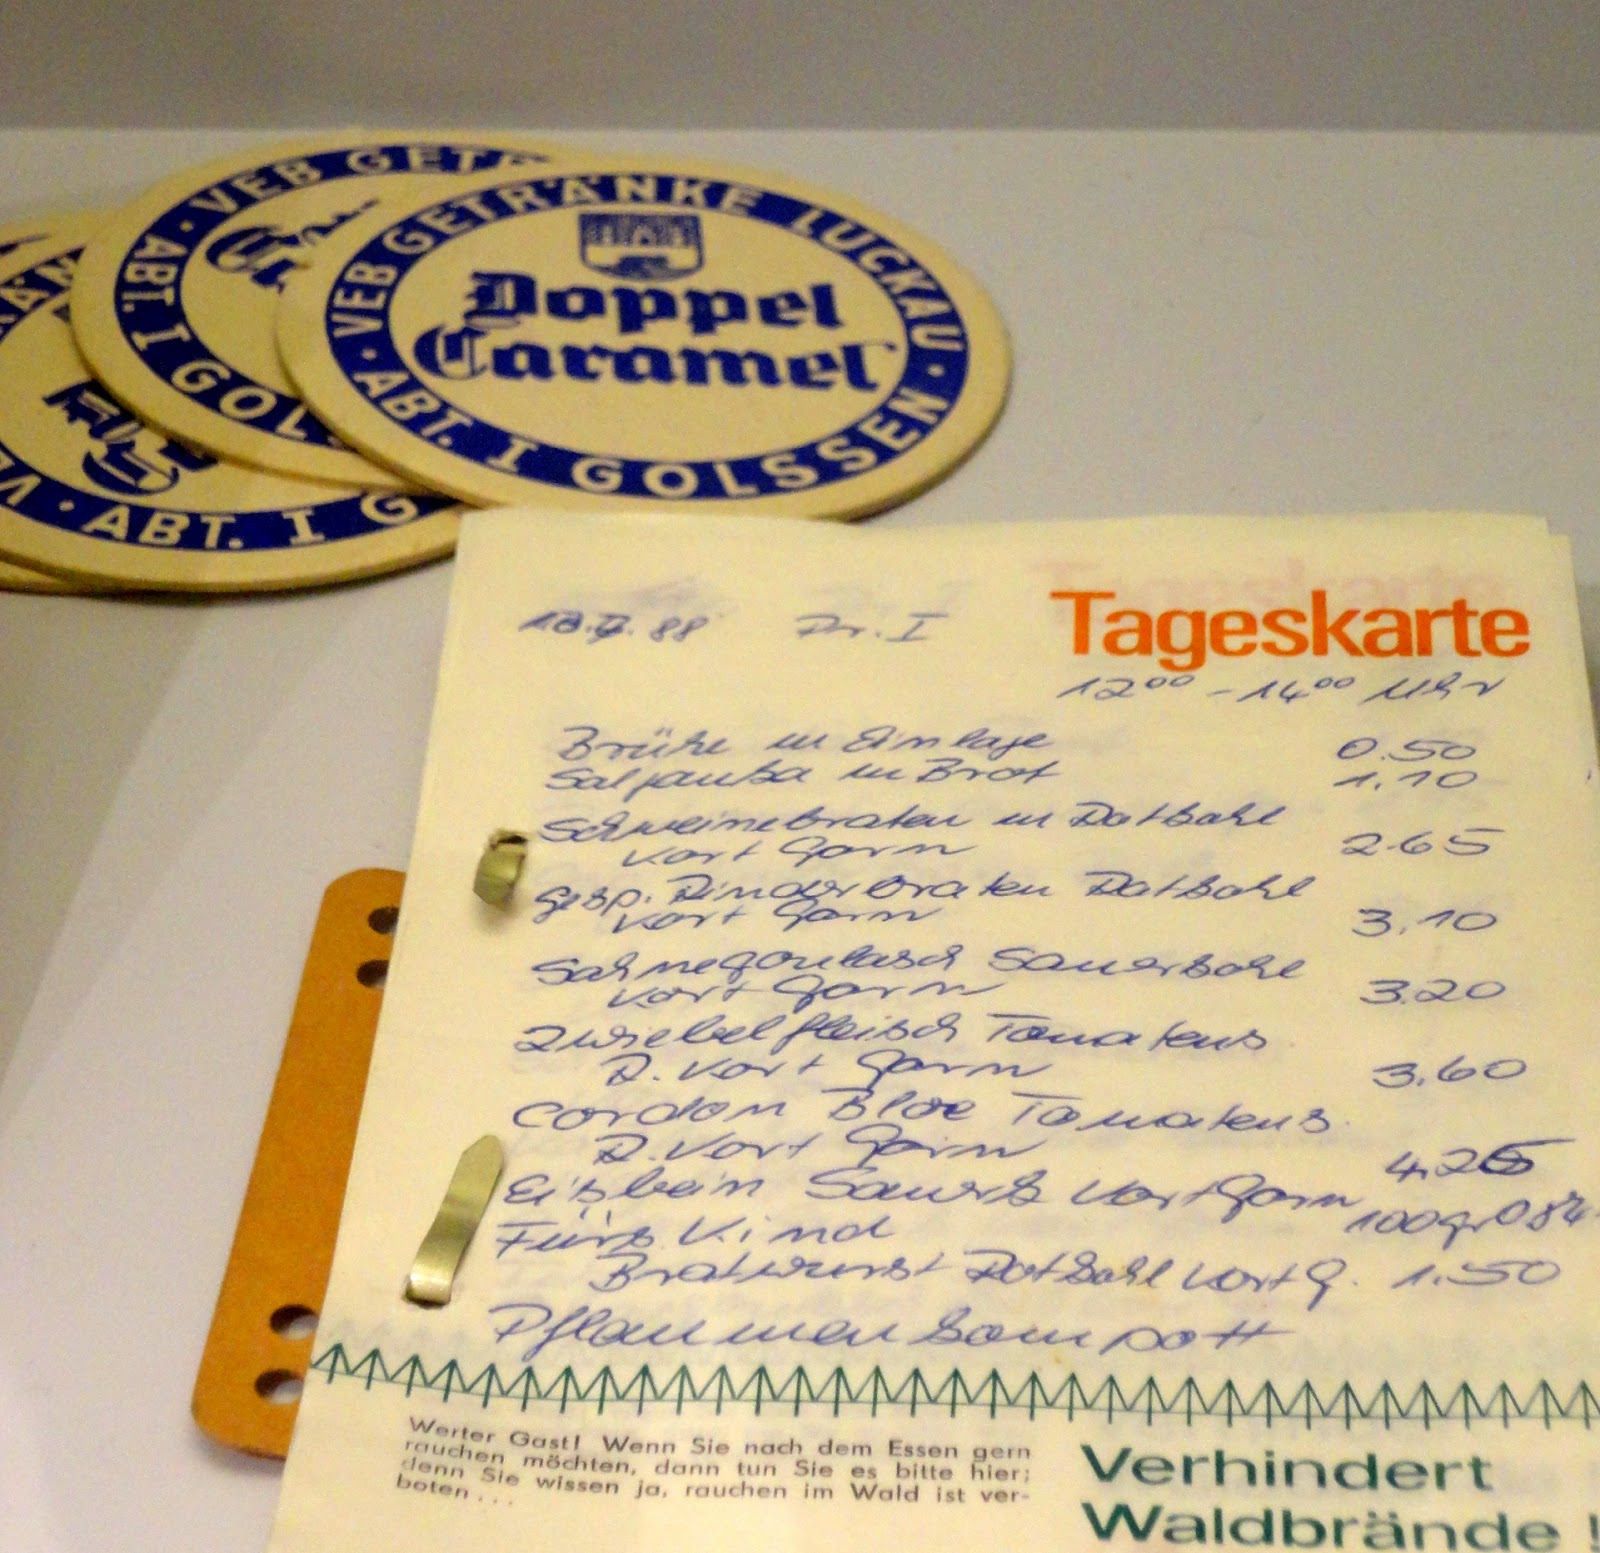 VEB GETRÄNKE LUCKAU
Doppel
Caramel
· ABT. I GOLSSEN ·
· VEB GETR
Car
ABT. I GOLS
ÄN
VE · ABT. I G
88 Pr. I
Tageskarte
12⁰⁰ - 14⁰⁰ Uhr
Brühe m Einlage 0.50
Soljanka m Brot 1.10
Schweinebraten m Rotkohl
Kart Garn 2.65
Gesp. Rinderbraten Rotkohl
Kart Garn 3.10
Sahnegoulasch Sauerkohl
Kart Garn 3.20
Zwiebelfleisch Tomatens
R. Kart Garn 3.60
Cordon Bloe Tomatens.
R. Kart Garn 4.25
Eisbein Sauerk Kart Garn 100gr 0.84
Fürs Kind
Bratwurst Rotkohl Kart G. 1.50
Pflaumenkompott
Werter Gast! Wenn Sie nach dem Essen gern
rauchen möchten, dann tun Sie es bitte hier;
denn Sie wissen ja, rauchen im Wald ist ver-
boten...
Verhindert
Waldbrände !